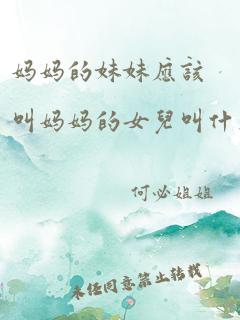 妈妈的妹妹应該
叫妈妈的女兒叫什
何必姐姐
未经同意禁止转载